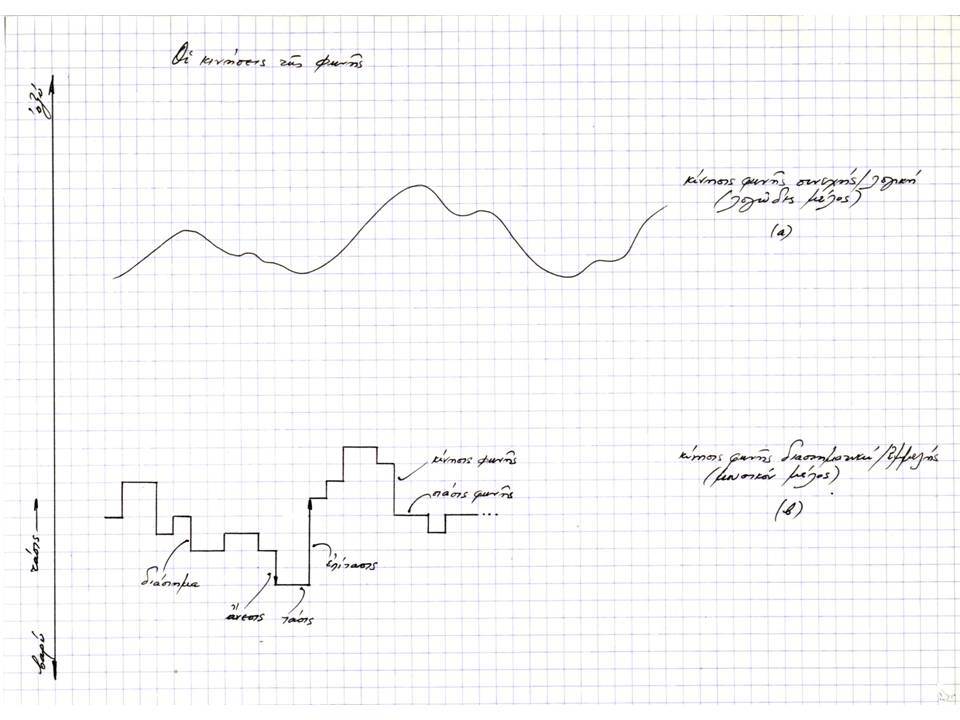 Οἱ κινήσεις τῆς φωνῆς
ὀξύ
κίνησις φωνῆς συνεχής/λογική
(λογῶδες μέλος)
(a)
κίνησις φωνῆς
στάσις φωνῆς
κίνησις φωνῆς διαστηματική/ἐμμελής
(μουσικόν μέλος)
(β)
...
τάσις
διάστημα
ἐπίτασις
ἄνεσις
τάσις
βαρύ